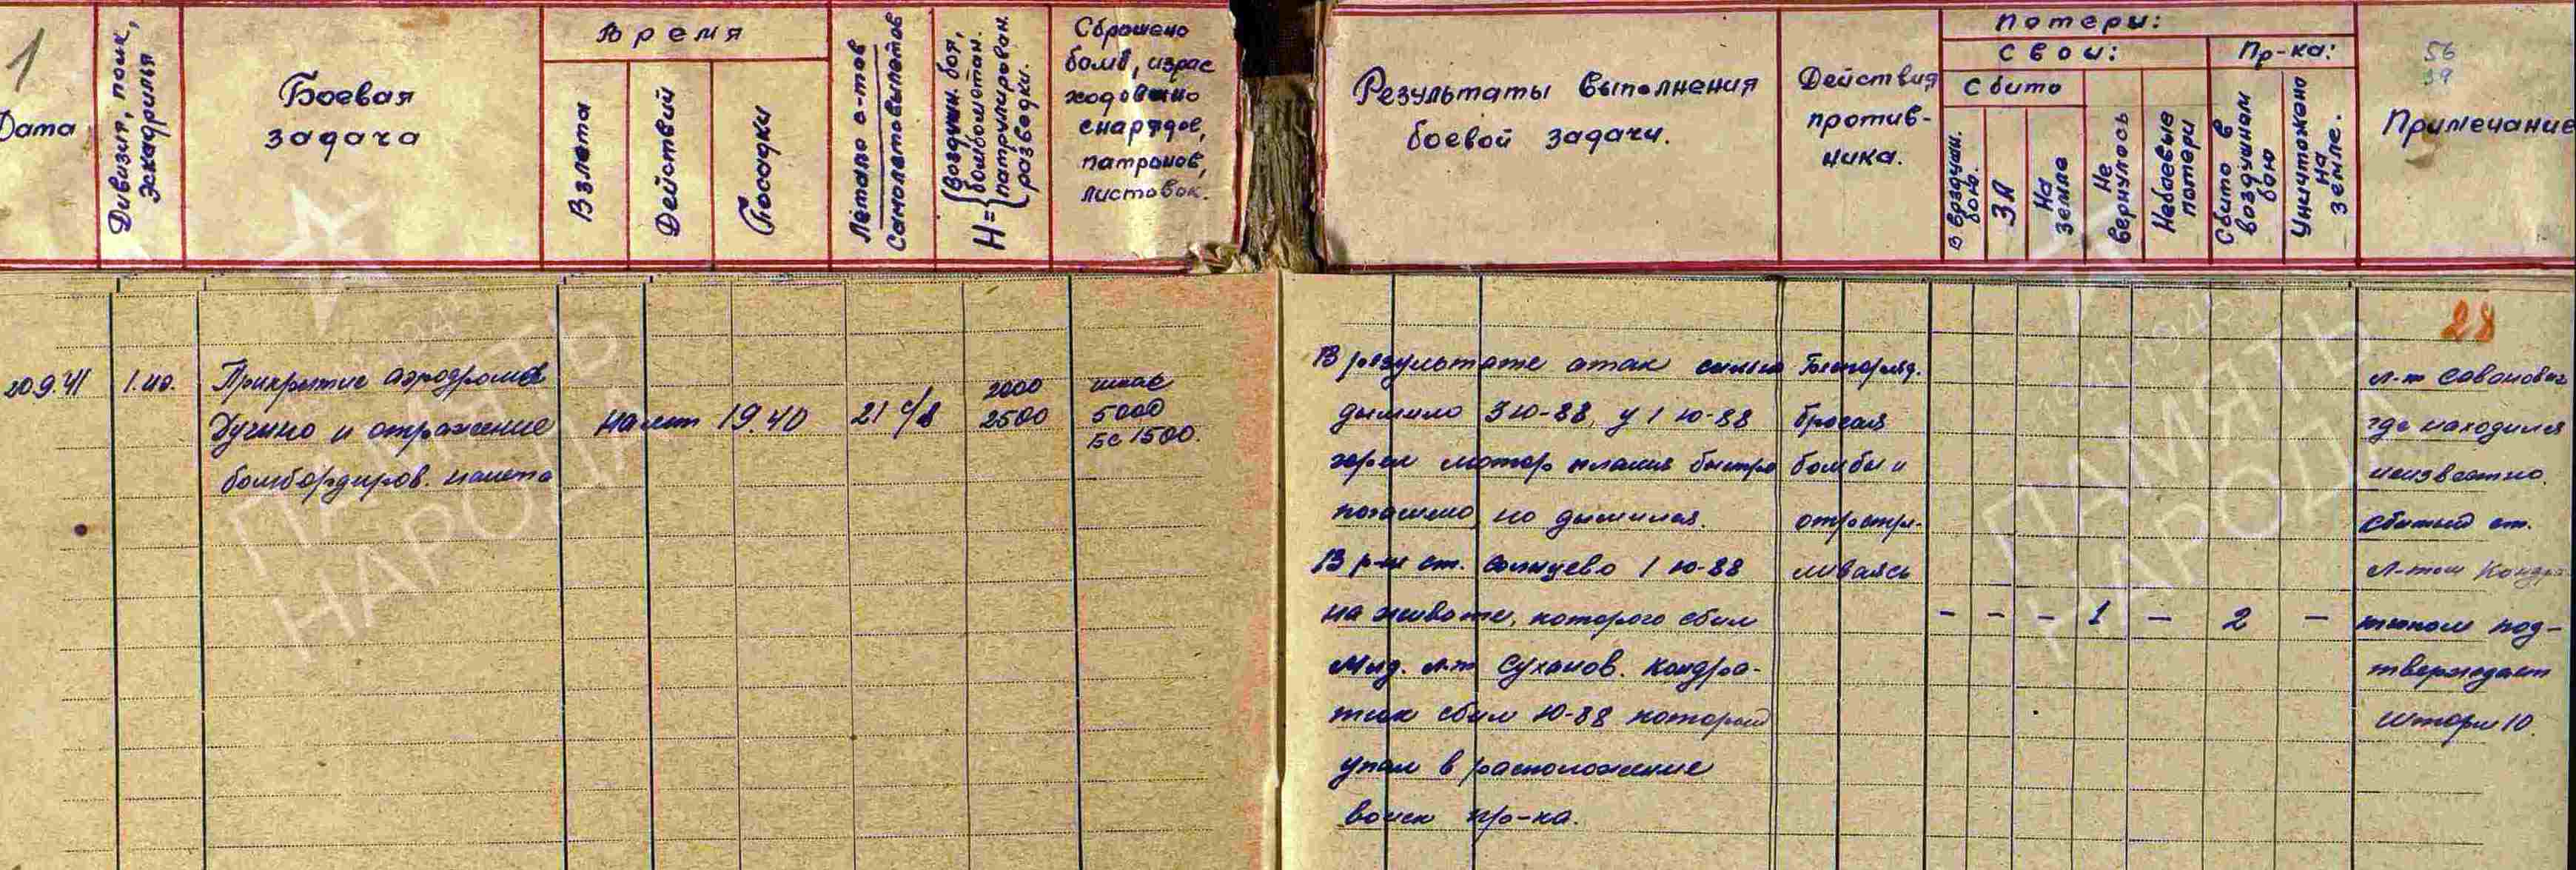 1
Дата
Дивизия, полк, эскадрилья
Боевая
задача
Время
Взлета
Действий
Посадки
Летало с-тов
Самолетовылетов
H= Воздушн. боя, бомбометан. патрулирован. разведки.
Сброшено
бомб, израс
ходовано
снарядов,
патронов,
листовок.
Результаты выполнения
боевой задачи.
Действия
против-
ника.
Потери:
Свои:
Пр-ка:
Сбито
В воздушн. бою.
ЗА
На земле
Не вернулось
Небоевые потери
Сбито в воздушном бою
Уничтожено на земле.
56
39
Примечание
28
20.9.41
Прикрытие аэродрома
и отражение
бомбордиров. налета
налет
19.40
21
2000
2500
шкас
5000
БС 1500.
В результате атак сильно
дымило 3 Ю-88, у 1 Ю-88
горел мотор пламя быстро
погашено но дымился.
В р-не ст. Солнцево 1 Ю-88
на животе, которого сбил
Млд. л-т Суханов. Кондра-
тюк сбил Ю-88 который
упал в расположение
войск пр-ка.
бросая
бомбы и
отстрели-
ваясь
- - - 1 - 2 -
л-т Саванович
где находился
неизвестно.
сбитый ст.
л-том Кондра
тюком под-
тверждает
Шторм 10.
ПАМЯТЬ
НАРОДА
ПАМЯТЬ
НАРОДА